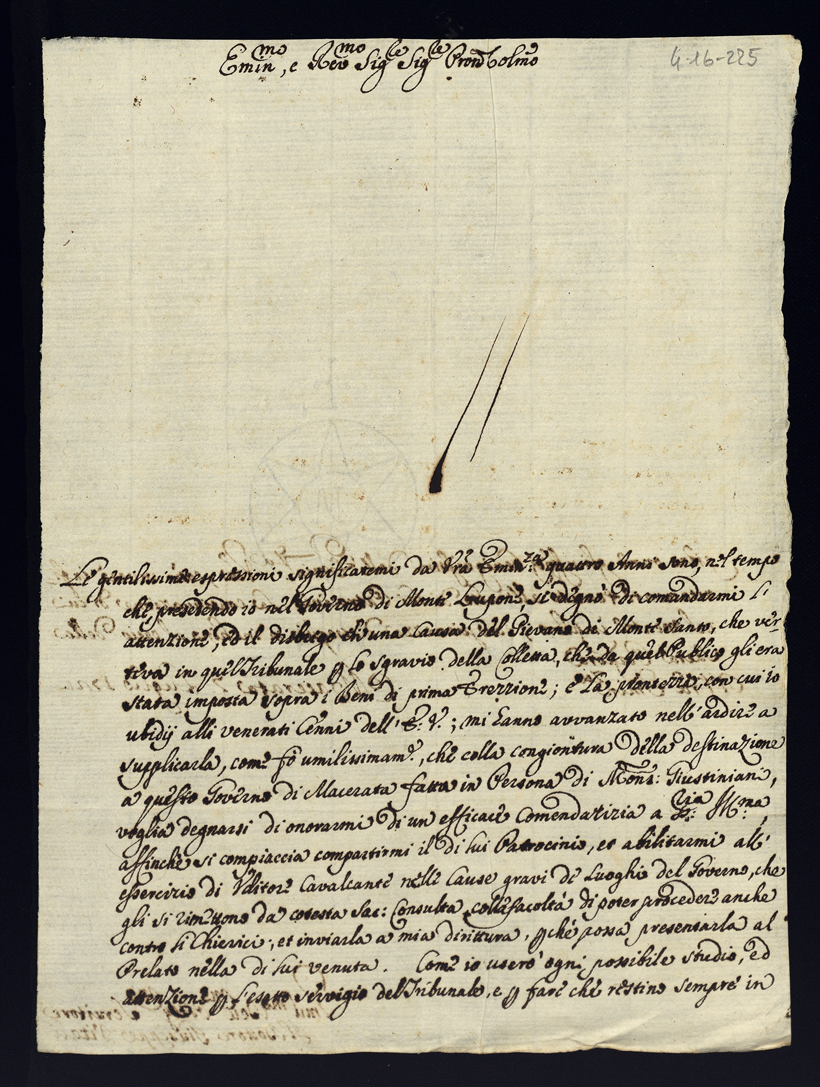 Emin.mo, e Rev.mo Sig.re Sig.re Pron Colmo
4-16-225
Le gentilissime espressioni significatemi da Vrã Emin.za quattro Anni sono, nel tempo
che, presedendo io nel Governo di Monte Lupone, si degnò di comandarmi l'
attenzione, ed il disbrigo di una Causa del Pievano di Monte Santo, che ver-
teva in quel Tribunale p lo sgravio della Colletta, che da quel Publico gli era
stata imposta sopra i Beni di prima Erezzione; e la prontezza, con cui io
ubidij alli venerati Cenni dell'E. V.; mi hanno avvanzato nell'ardire a
supplicarla, come fò umilissimam.e, che colla congiontura della destinazione
a questo Governo di Macerata fatta in Persona di Mons: Giustiniani,
voglia degnarsi di onorarmi di un efficace Comendatizia a S: S. Ill.ma,
affinche si compiaccia compartirmi il di lui Patrocinio, et abilitarmi all'
essercizio di Vditore Cavalcante nelle Cause gravi de Luoghi del Governo, che
gli si rimettono da cotesta Sac: Consulta, colla facoltà di poter procedere anche
contro li Chierici; et inviarla a mia dirittura, p chè possa presentarla al
Prelato nella di lui venuta. Come io userò ogni possibile studio, ed
attenzione p l'esatto servigio del Tribunale, e p fare che restino sempre in